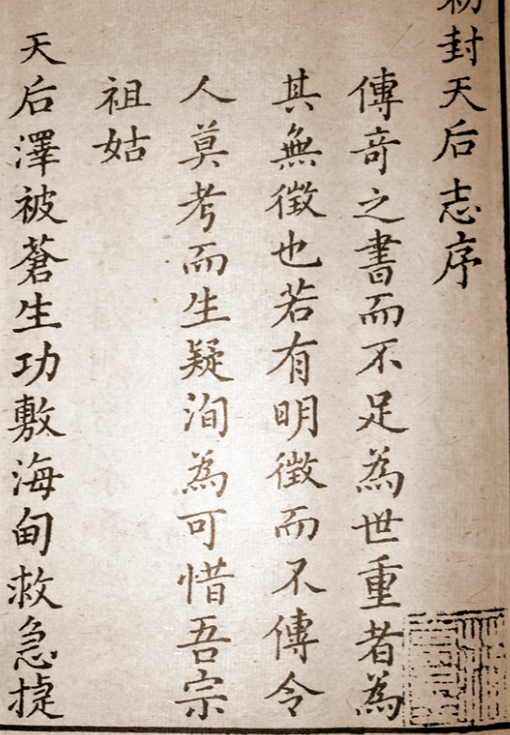 勅封天后志序
傳奇之書而不足為世重者為
其無徵也若有明徵而不傳令
人莫考而生疑洵為可惜吾宗
祖姑
天后澤被蒼生功敷海甸救急捷